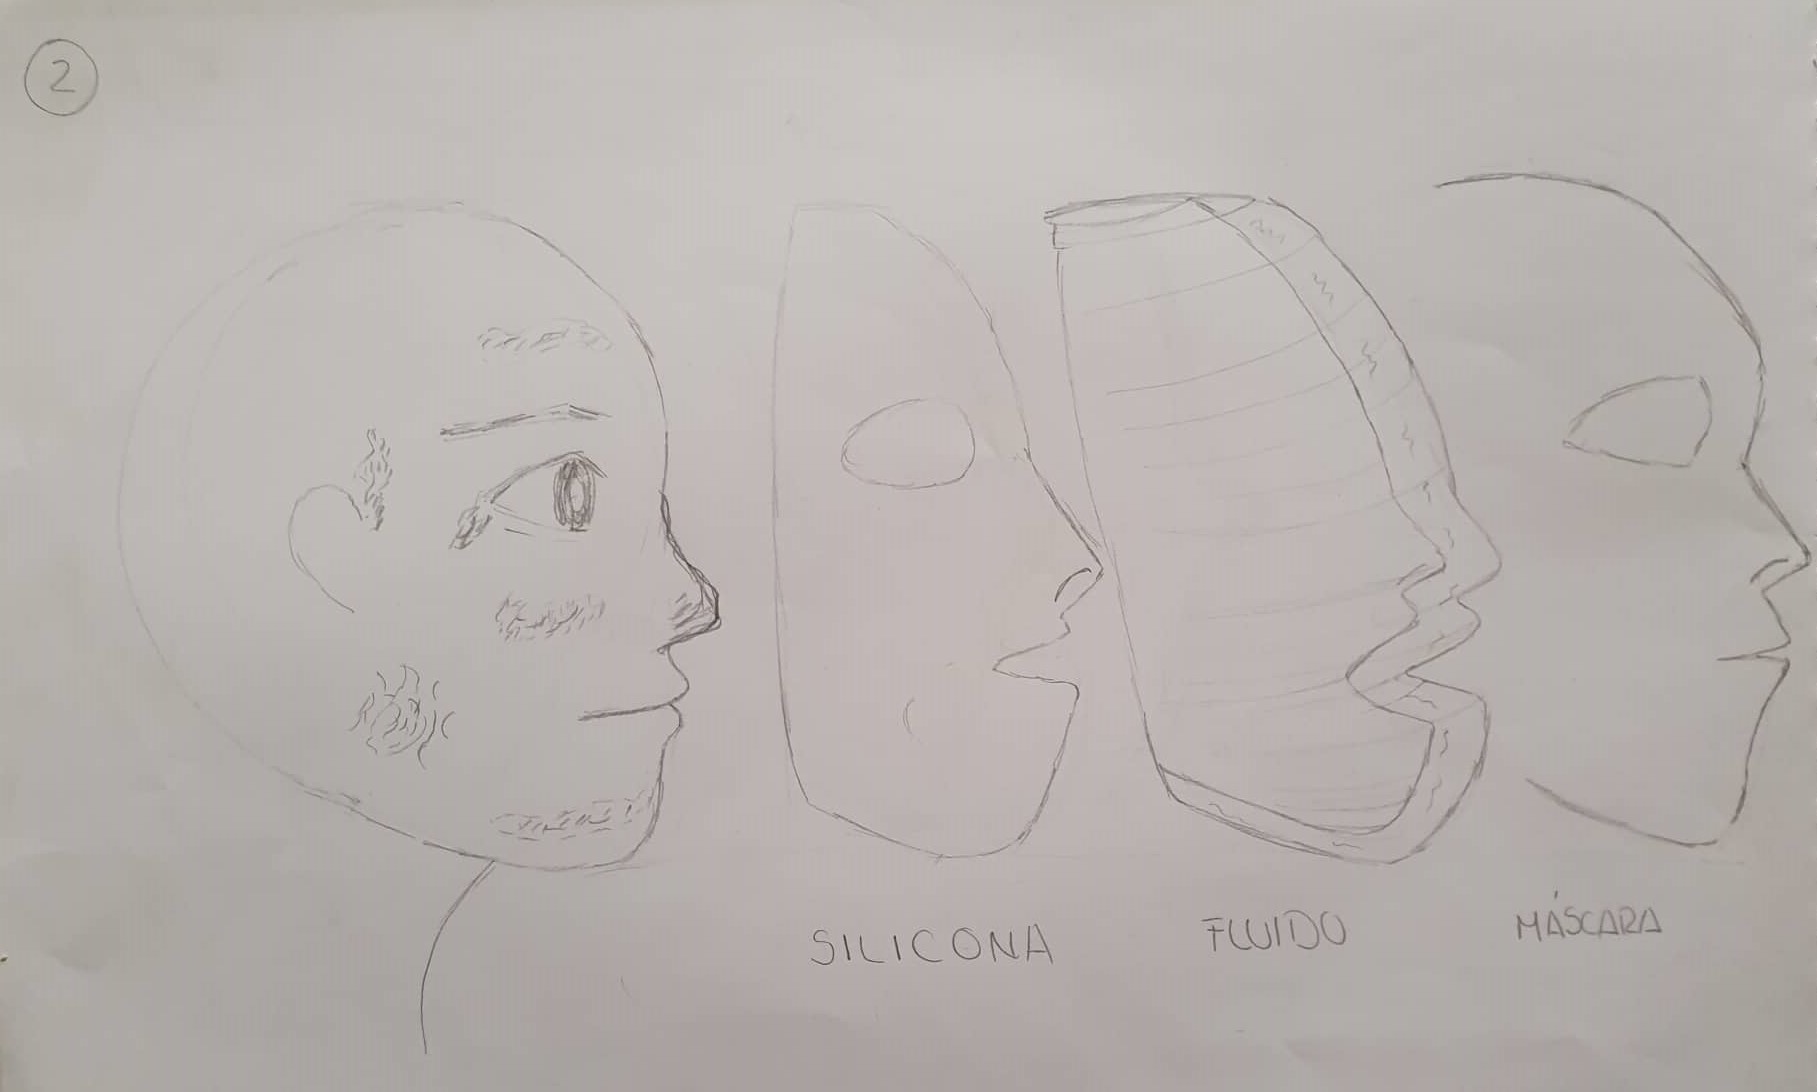 2
SILICONA
FLUIDO
MÁSCARA